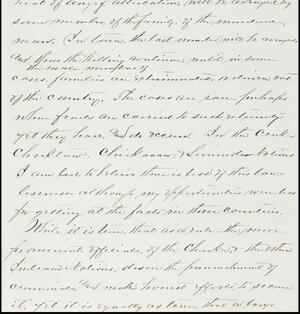 some member of the family, of the murdered
man. In turn, the last murder will be avenged
and thus the killing continues until in some
the male members of
cases families are exterminated, or driven out
of the country. The cases are rare perhaps
when feuds are carried to such extremity
yet they have, and do occur. In the Creek
Choctaw, Chickasaw & Seminole Nations
I am led to believe there is less of this law-
lessness although my opportunities were less
for getting at the facts in those countries.
While it is true, that as a rule the more
prominent officials of the Cherokee & the other
Indian Nations, desire the punishment of
criminals, and make honest efforts to secure
it, yet it is equally as true, that a large